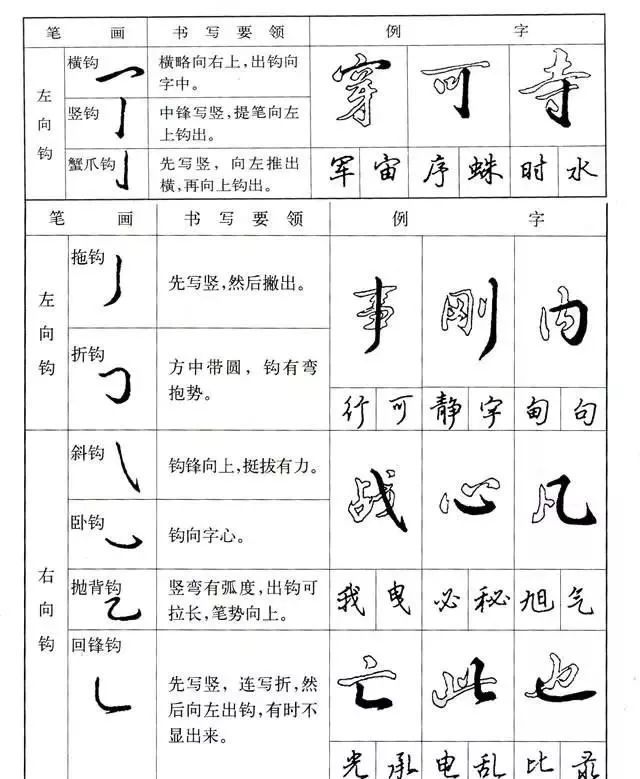 笔 画 书 写 要 领 例 字
左向钩
横钩
横略向右上，出钩向
字中。
竖钩
中锋写竖，提笔向左
上钩出。
蟹爪钩
先写竖，向左推出
横，再向上钩出。
穿 可 寺
军 宙 序 蛛 时 水
笔 画 书 写 要 领 例 字
左向钩
拖钩
先写竖，然后撇出。
折钩
方中带圆，钩有弯
抱势。
事 刚 内
行 可 静 字 甸 句
右向钩
斜钩
钩锋向上，挺拔有力。
卧钩
钩向字心。
抛背钩
竖弯有弧度，出钩可
拉长，笔势向上。
回锋钩
先写竖，连写折，然
后向左出钩，有时不
显出来。
战 心 凡
我 曳 必 秘 旭 气
亡 此 也
光 承 电 乱 比 最